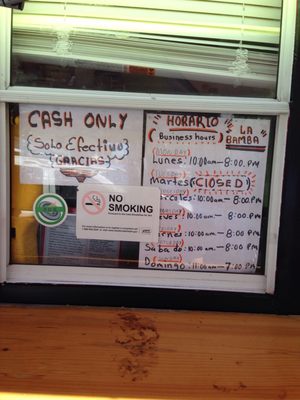 CASH ONLY
{Solo Efectivo}
{GRACIAS}
NO
SMOKING
"HORARIO"
Business hours
LA
BAMBA
MONDAY
Lunes: 10:00am - 8:00.PM
Martes CLOSED
10:00am - 8:00.PM
10:00am - 8:00.PM
10:00am - 8:00.PM
Sabado: 10:00am - 8:00.PM
Domingo: 11:00am - 7:00.PM